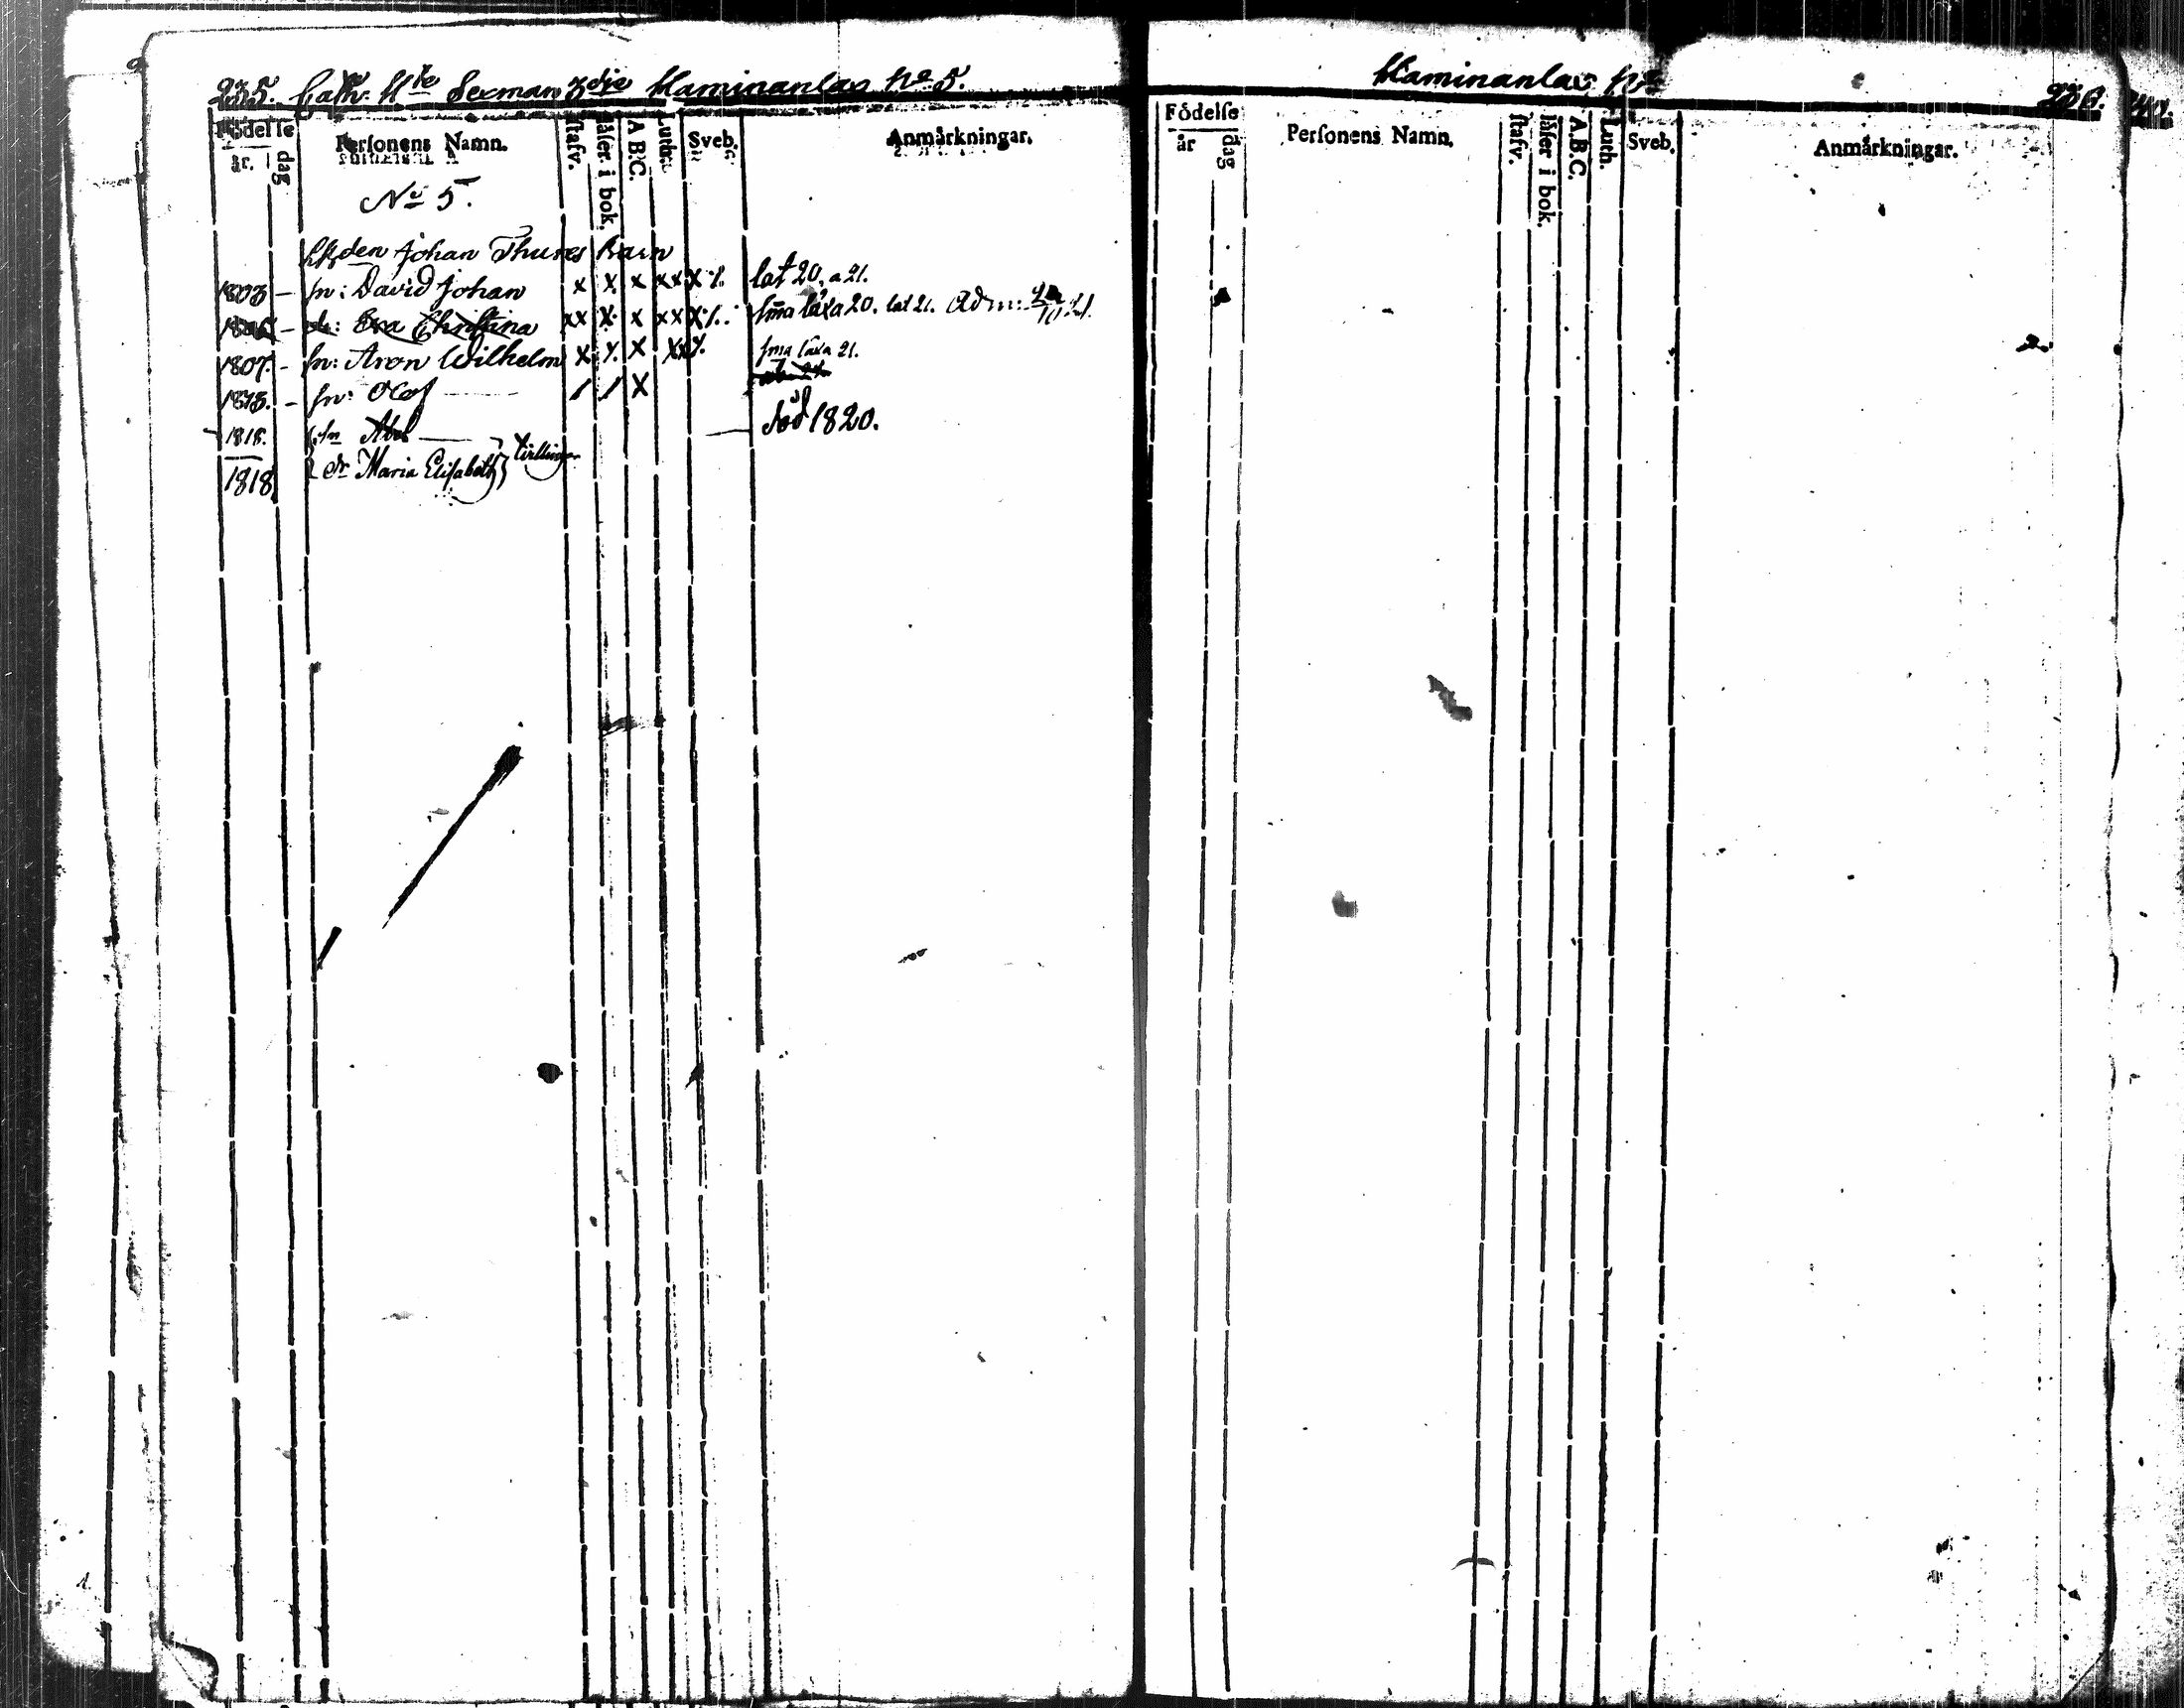 235. Cath. Mte Sexman 3dje Kaminanlax No 5.
Födelse
år. dag
Personens Namn.
stafv.
läser i bok.
A.B.C.
Luth.
Sveb.
Anmärkningar.
No 5.
den Johan Thures Barn
1803 – sn: David Johan x x x xx x lat 20. a 21.
Christina xx x x xx x sma läxa 20. lat 21. Adm:
1807. – sn: Aron Wilhelm x x x sma läxa 21.
sn: Olof / / x
1818. sn Abel död 1820.
1818 dr Maria Elisabeth tvillingar
Kaminanlax No
236.
Födelse
år dag
Personens Namn.
stafv.
läser i bok.
A.B.C.
Luth.
Sveb.
Anmärkningar.